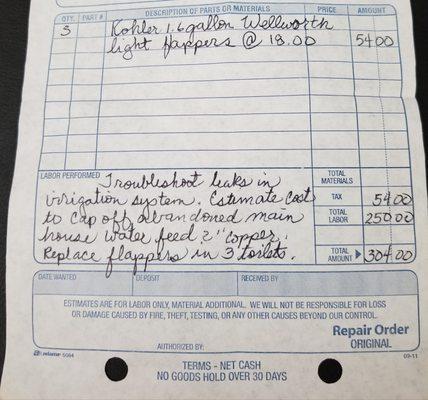 QTY. PART # DESCRIPTION OF PARTS OR MATERIALS PRICE AMOUNT
3 Kohler 1.6 gallon Wellworth
light flappers @ 18.00 54 00
LABOR PERFORMED TOTAL MATERIALS
Troubleshoot leaks in
irrigation system. Estimate cost TAX 54 00
to cap off abandoned main TOTAL LABOR 250 00
house water feed 2" copper.
Replace flappers in 3 toilets. TOTAL AMOUNT 304 00
DATE WANTED DEPOSIT RECEIVED BY
ESTIMATES ARE FOR LABOR ONLY, MATERIAL ADDITIONAL. WE WILL NOT BE RESPONSIBLE FOR LOSS
OR DAMAGE CAUSED BY FIRE, THEFT, TESTING, OR ANY OTHER CAUSES BEYOND OUR CONTROL.
Repair Order
ORIGINAL
AUTHORIZED BY:
adams 5084 09-11
TERMS - NET CASH
NO GOODS HOLD OVER 30 DAYS